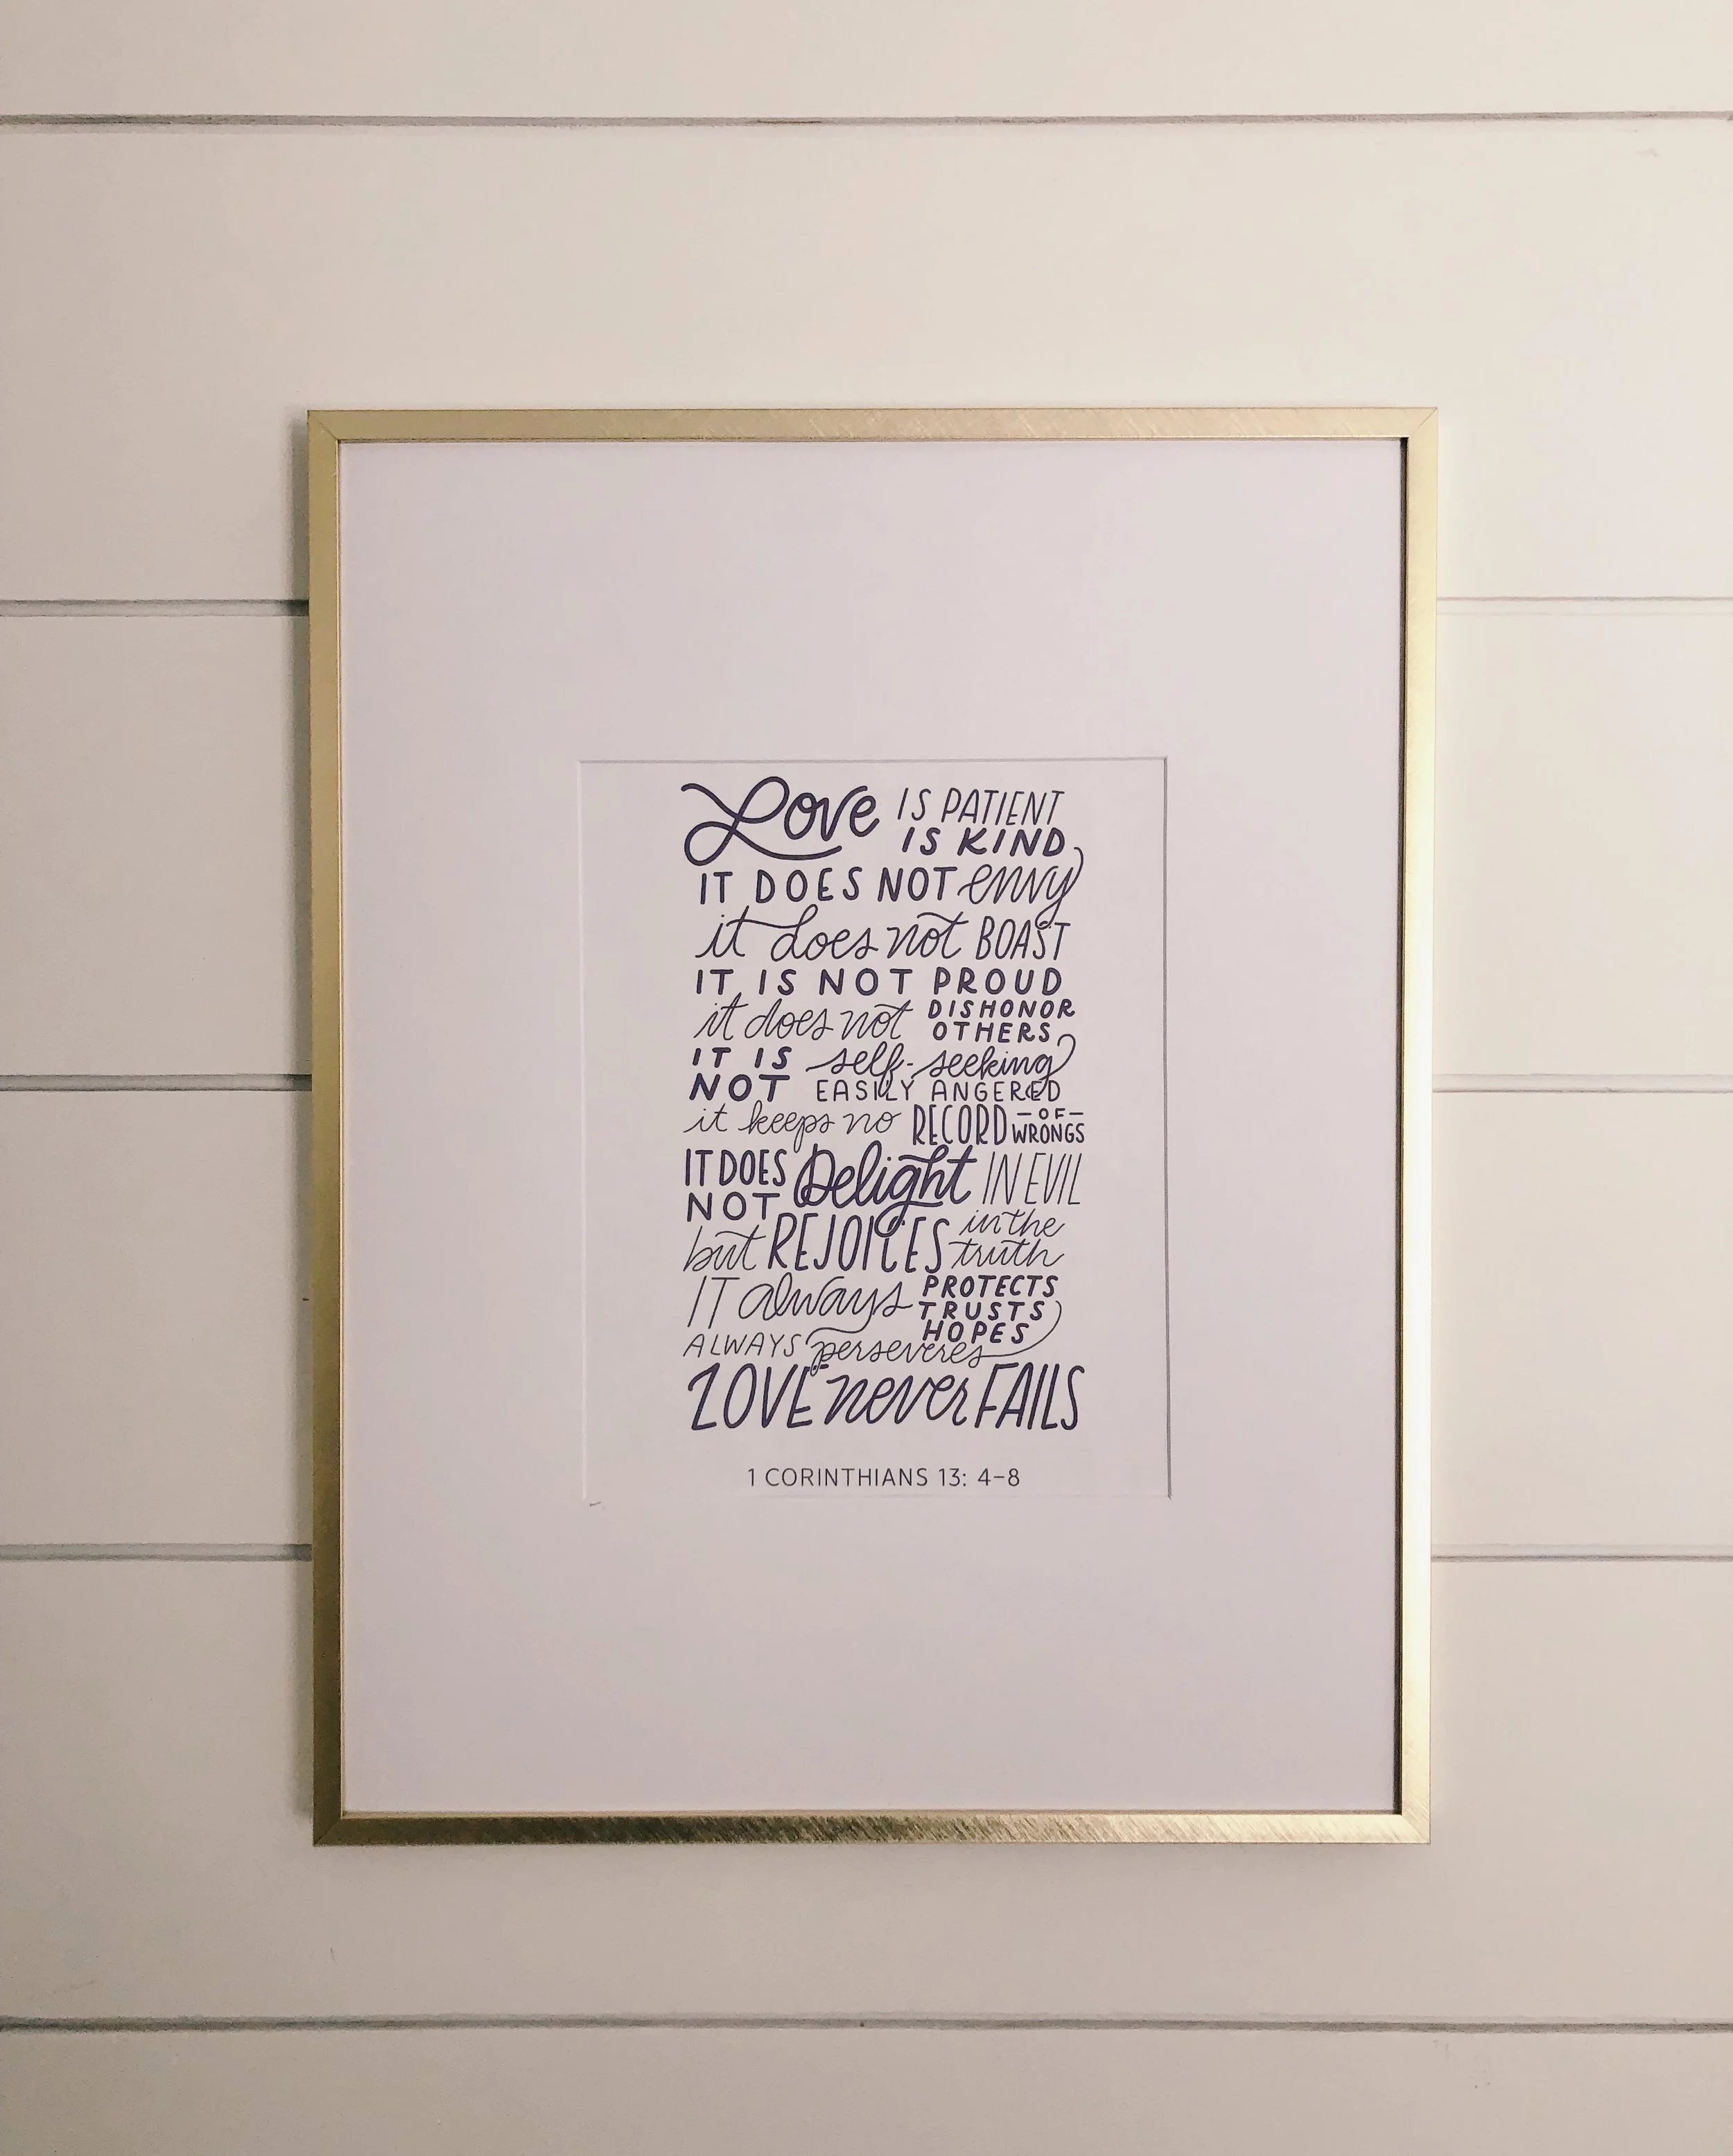 Love IS PATIENT
IS KIND
IT DOES NOT envy
it does not BOAST
IT IS NOT PROUD
it does not DISHONOR
OTHERS
IT IS self-seeking
NOT EASILY ANGERED
it keeps no RECORD -OF-
WRONGS
IT DOES Delight IN EVIL
NOT
but REJOICES in the
truth
IT always PROTECTS
TRUSTS
HOPES
ALWAYS perseveres
LOVE never FAILS
1 CORINTHIANS 13: 4-8